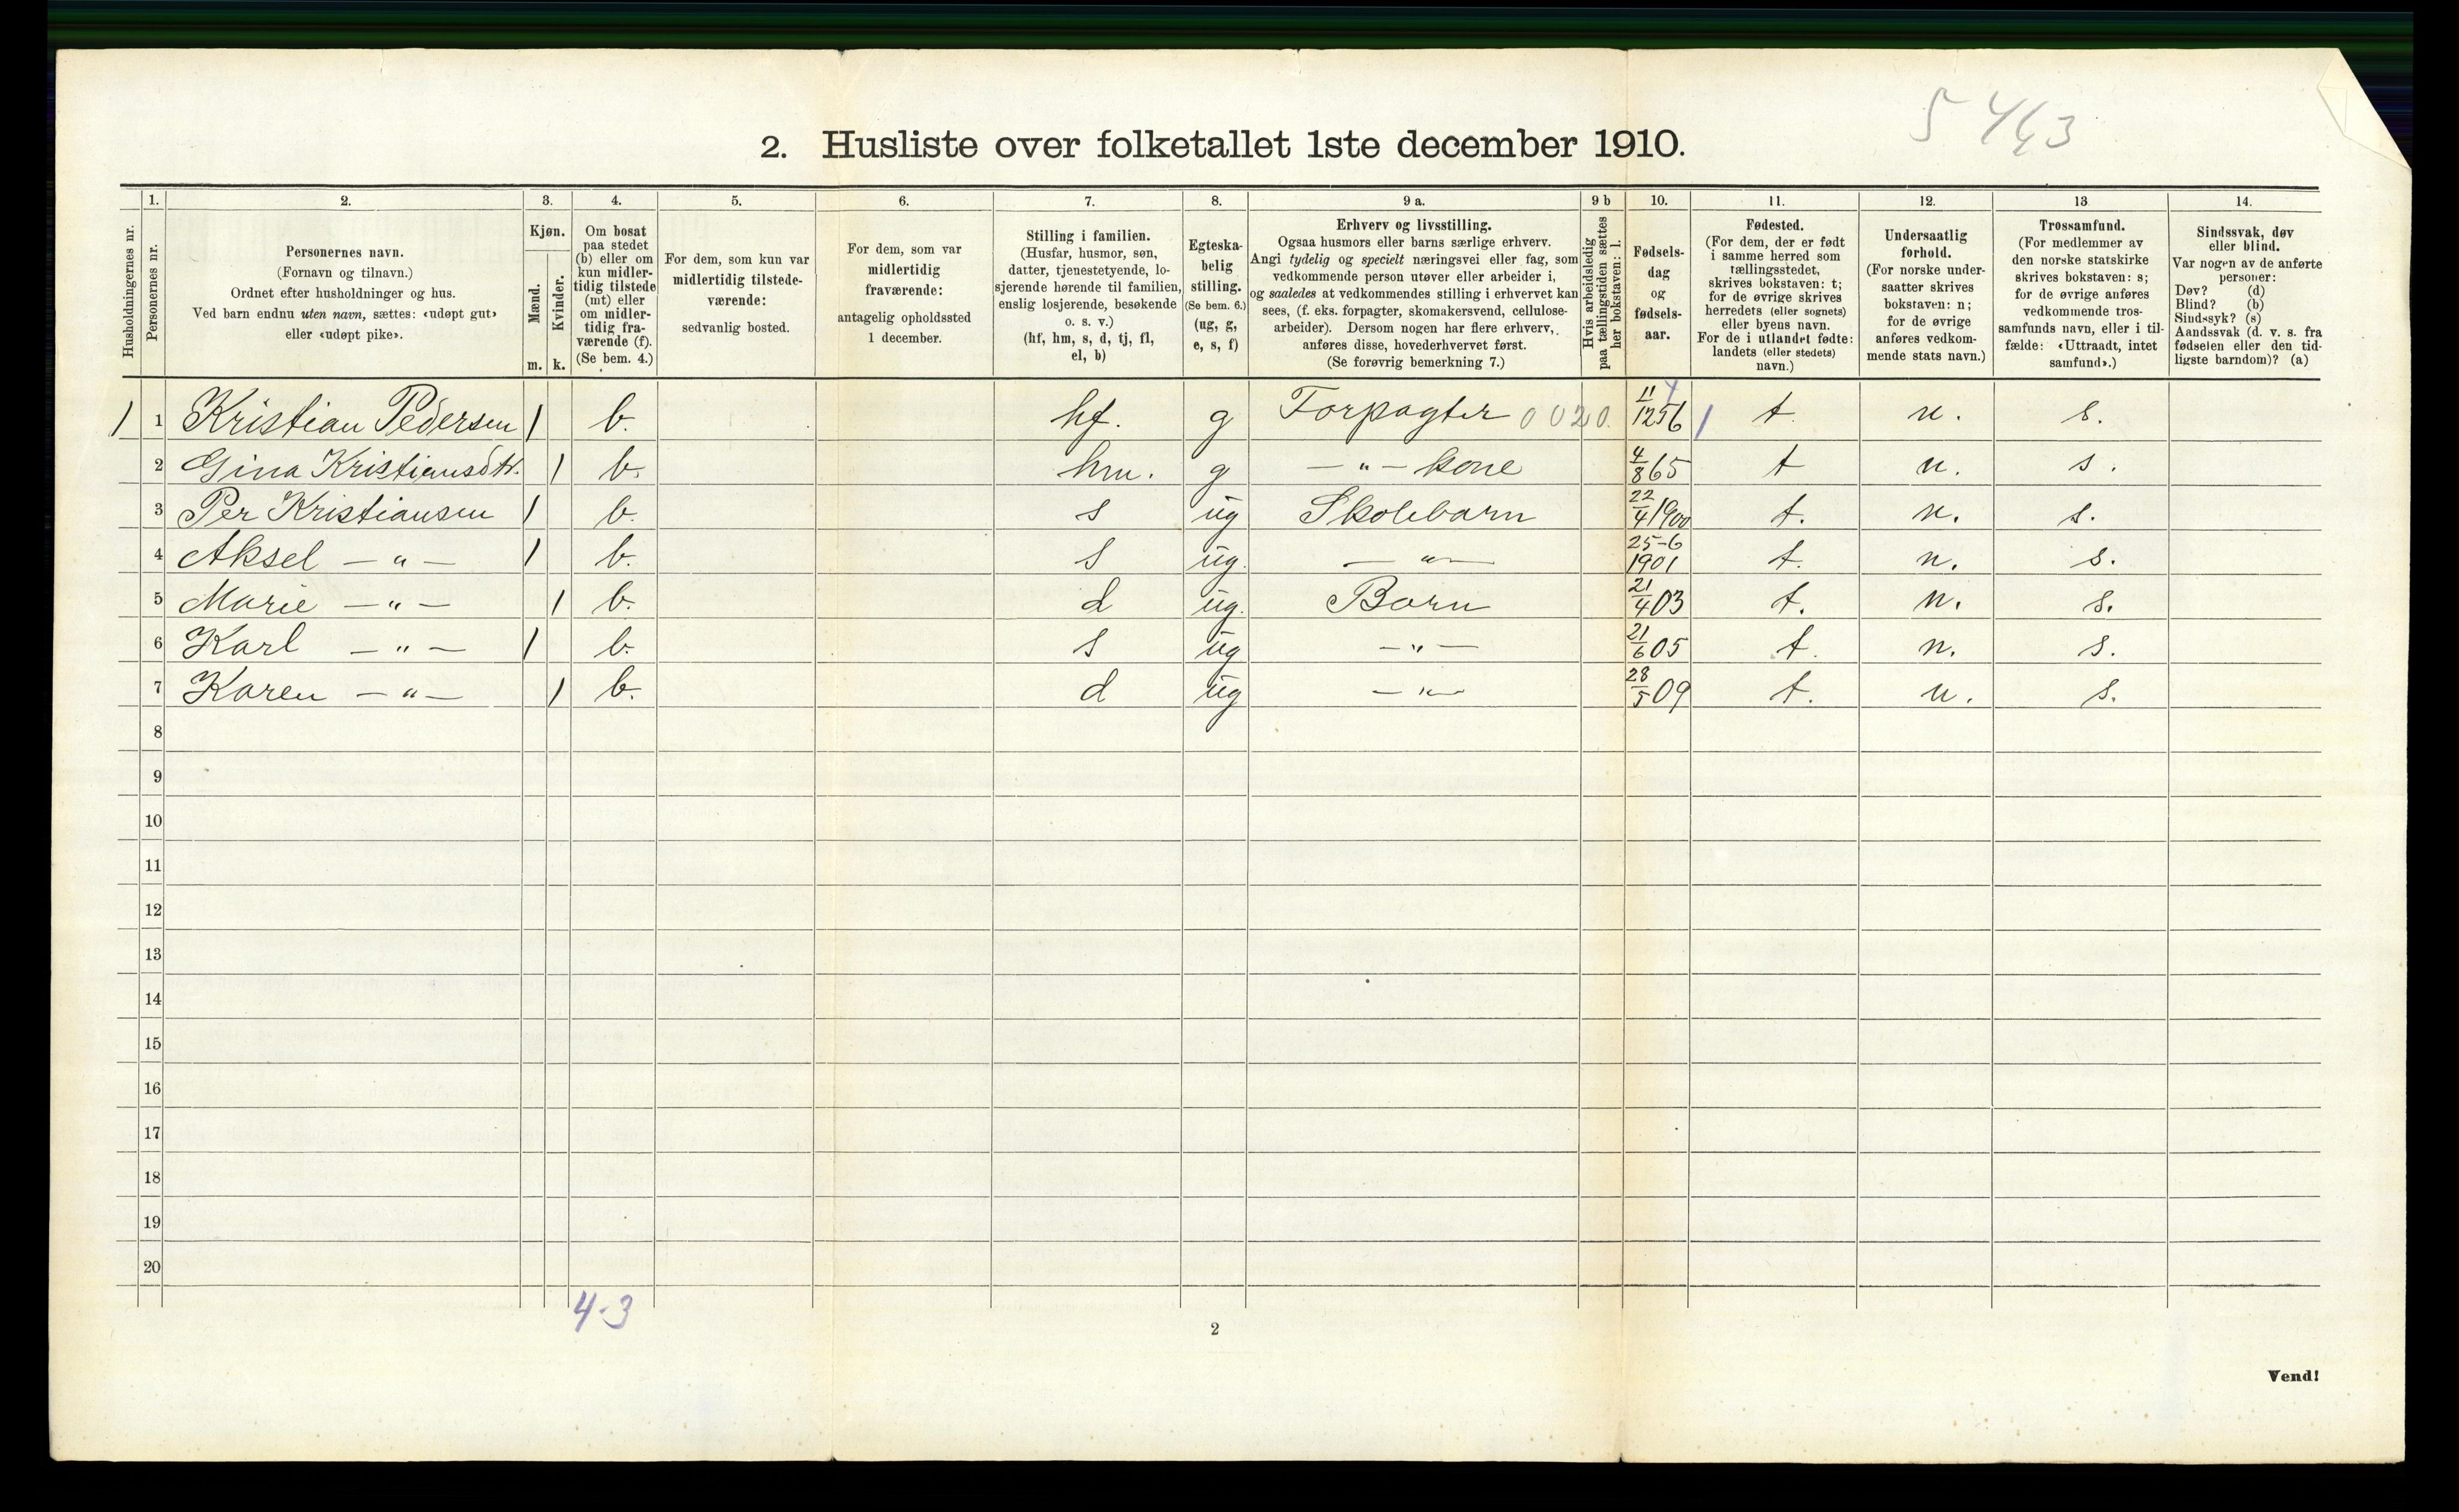 5 443
2. Husliste over folketallet 1ste december 1910.
Husholdningernes nr.
1. Personernes nr.
2. Personernes navn. (Fornavn og tilnavn.) Ordnet efter husholdninger og hus. Ved barn endnu uten navn, sættes: «udøpt gut» eller «udøpt pike».
3. Kjøn. Mænd. m. Kvinder. k.
4. Om bosat paa stedet (b) eller om kun midler-tidig tilstede (mt) eller om midler-tidig fra-værende (f). (Se bem. 4.)
5. For dem, som kun var midlertidig tilstede-værende: sedvanlig bosted.
6. For dem, som var midlertidig fraværende: antagelig opholdssted 1 december.
7. Stilling i familien. (Husfar, husmor, søn, datter, tjenestetyende, lo-sjerende hørende til familien, enslig losjerende, besøkende o. s. v.) (hf, hm, s, d, tj, fl, el, b)
8. Egteska-belig stilling. (Se bem. 6.) (ug, g, e, s, f)
9 a. Erhverv og livsstilling. Ogsaa husmors eller barns særlige erhverv. Angi tydelig og specielt næringsvei eller fag, som vedkommende person utøver eller arbeider i, og saaledes at vedkommendes stilling i erhvervet kan sees, (f. eks. forpagter, skomakersvend, cellulose-arbeider). Dersom nogen har flere erhverv, anføres disse, hovederhvervet først. (Se forøvrig bemerkning 7.)
9 b Hvis arbeidsledig paa tællingstiden sættes her bokstaven: l.
10. Fødsels-dag og fødsels-aar.
11. Fødested. (For dem, der er født i samme herred som tællingsstedet, skrives bokstaven: t; for de øvrige skrives herredets (eller sognets) eller byens navn. For de i utlandet fødte: landets (eller stedets) navn.)
12. Undersaatlig forhold. (For norske under-saatter skrives bokstaven: n; for de øvrige anføres vedkom-mende stats navn.)
13 Trossamfund. (For medlemmer av den norske statskirke skrives bokstaven: s; for de øvrige anføres vedkommende tros-samfunds navn, eller i til-fælde: «Uttraadt, intet samfund».)
14. Sindssvak, døv eller blind. Var nogen av de anførte personer: Døv? (d) Blind? (b) Sindssyk? (s) Aandssvak (d. v. s. fra fødselen eller den tid-ligste barndom)? (a)
1 1 Kristian Pedersen 1 b. hf. g Forpagter 0020. 11/12 56 1 t n. s.
2 Gina Kristiansdtr. 1 b. hm. g — " — kone 4/8 65 t n. s.
3 Per Kristiansen 1 b. s ug Skolebarn 22/4 1900 t. n. s.
4 Aksel — " — 1 b. s ug. — " — 25-6 1901 t. n. s.
5 Marie — " — 1 b. d ug. Barn 21/4 03 t. n. s.
6 Karl — " — 1 b. s ug — " — 21/6 05 t. n. s.
7 Karen — " — 1 b. d ug — " — 28/5 09 t. n. s.
8
9
10
11
12
13
14
15
16
17
18
19
20
4-3
2
Vend!